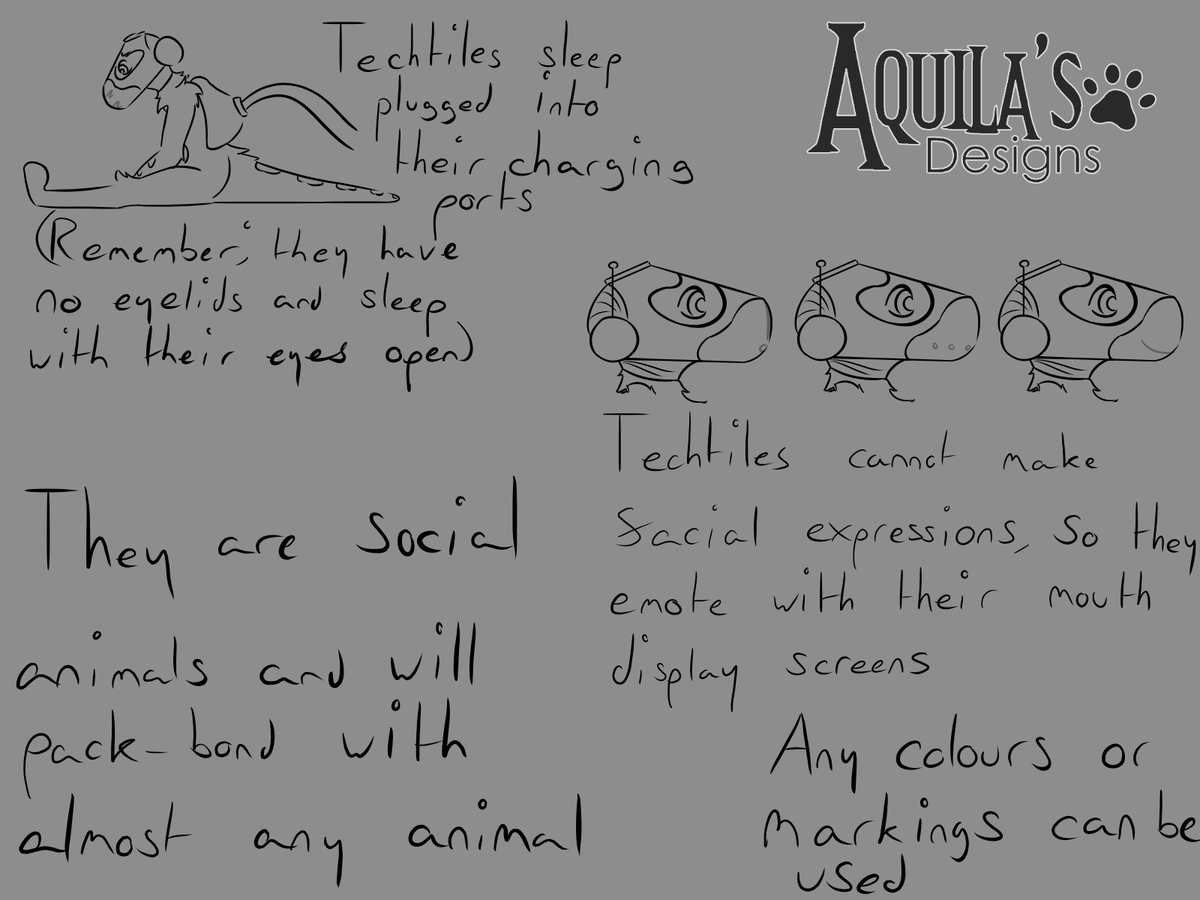 Techtiles sleep
plugged into
their charging
ports
(Remember, they have
no eyelids and sleep
with their eyes open)
AQUILA'S
Designs
Techtiles cannot make
facial expressions, so they
emote with their mouth
display screens
They are social
animals and will
pack-bond with
almost any animal
Any colours or
markings can be
used